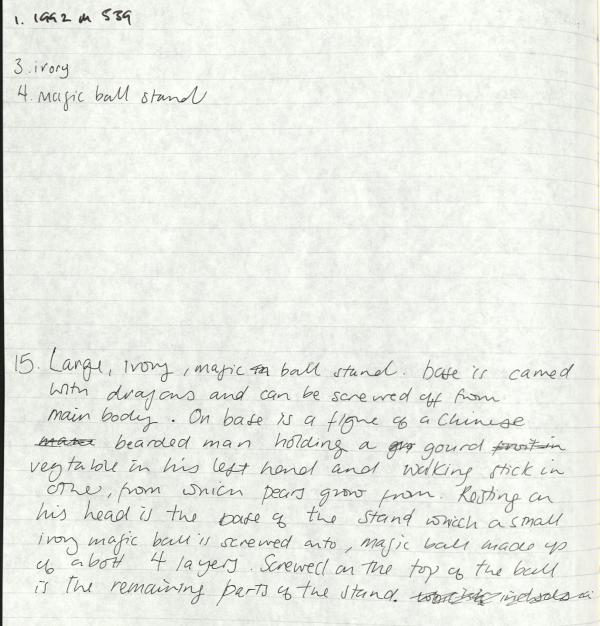 1. 1992 m 539
3. ivory
4. magic ball stand
15. Large, ivory, magic ball stand. base is carved
with dragons and can be screwed off from
main body. On base is a figure of a Chinese
bearded man holding a gourd
vegtable in his left hand and walking stick in
other, from which pears grow from. Resting on
his head is the base of the stand which a small
ivory magic ball is screwed onto, magic ball made up
of abott 4 layers. Screwed on the top of the ball
is the remaining parts of the stand.